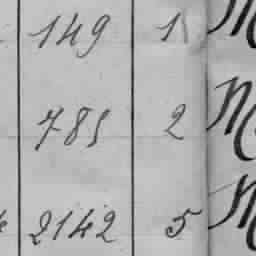 149 1
785 2
2142 5